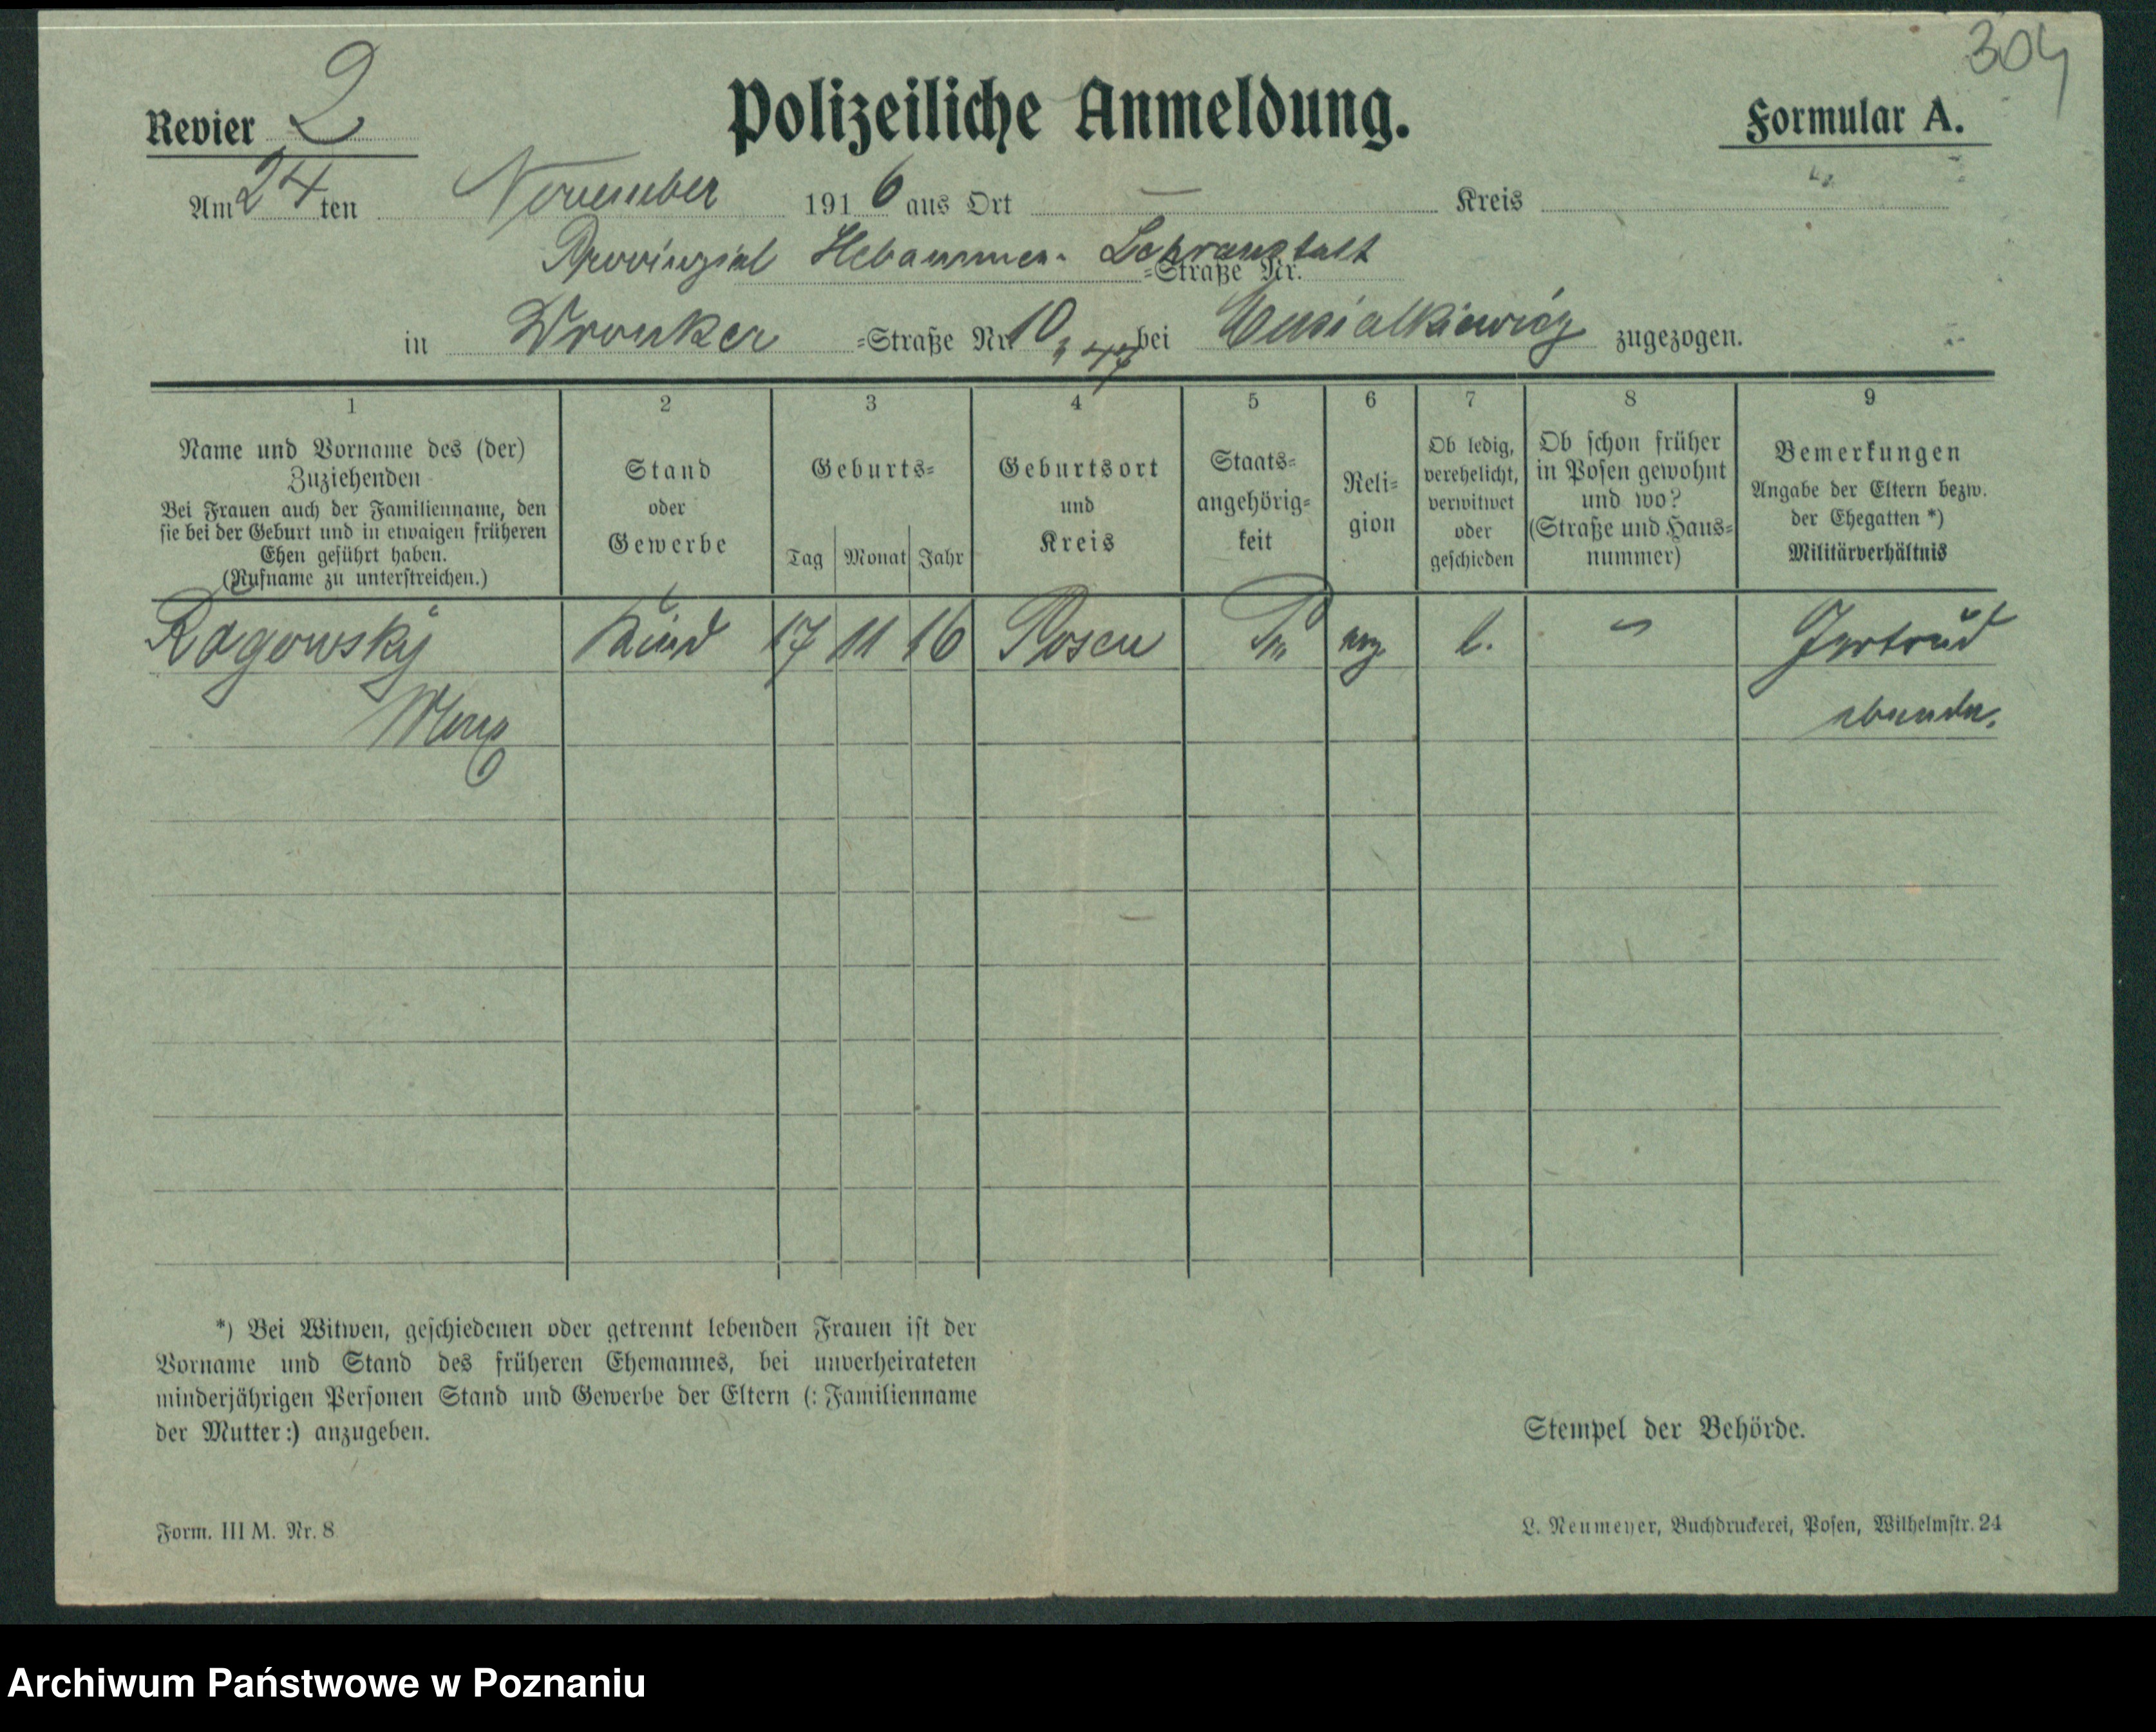 304
Revier 2
Polizeiliche Anmeldung.
Formular A.
Am 24 ten November 1916 aus Ort — Kreis
Provinzial Hebammen- Lehranstalt
=Straße Nr.
in Wronker =Straße Nr. 10 bei Musialkiewicz zugezogen.
1 2 3 4 5 6 7 8 9
Name und Vorname des (der)
Zuziehenden
Bei Frauen auch der Familienname, den
sie bei der Geburt und in etwaigen früheren
Ehen geführt haben.
(Rufname zu unterstreichen.)
Stand
oder
Gewerbe
Geburts=
Tag Monat Jahr
Geburtsort
und
Kreis
Staats=
angehörig=
keit
Reli=
gion
Ob ledig,
verehelicht,
verwitwet
oder
geschieden
Ob schon früher
in Posen gewohnt
und wo?
(Straße und Haus=
nummer)
Bemerkungen
Angabe der Eltern bezw.
der Ehegatten *)
Militärverhältnis
Rogowsky Kind 17 11 16 Posen Pr. l. Gertrud
*) Bei Witwen, geschiedenen oder getrennt lebenden Frauen ist der
Vorname und Stand des früheren Ehemannes, bei unverheirateten
minderjährigen Personen Stand und Gewerbe der Eltern (: Familienname
der Mutter:) anzugeben.
Stempel der Behörde.
Form. III M. Nr. 8
L. Neumeyer, Buchdruckerei, Posen, Wilhelmstr. 24
Archiwum Państwowe w Poznaniu